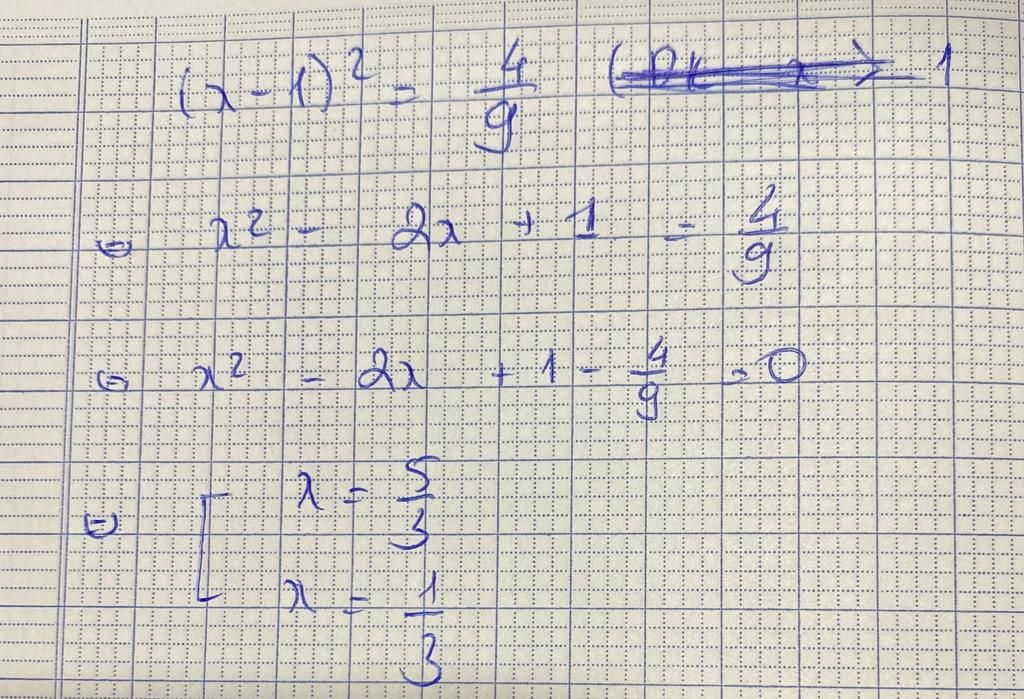 (x - 1)² = 4/9 1
⇔ x² - 2x + 1 = 4/9
⇔ x² - 2x + 1 - 4/9 = 0
⇔ [ x = 5/3
x = 1/3